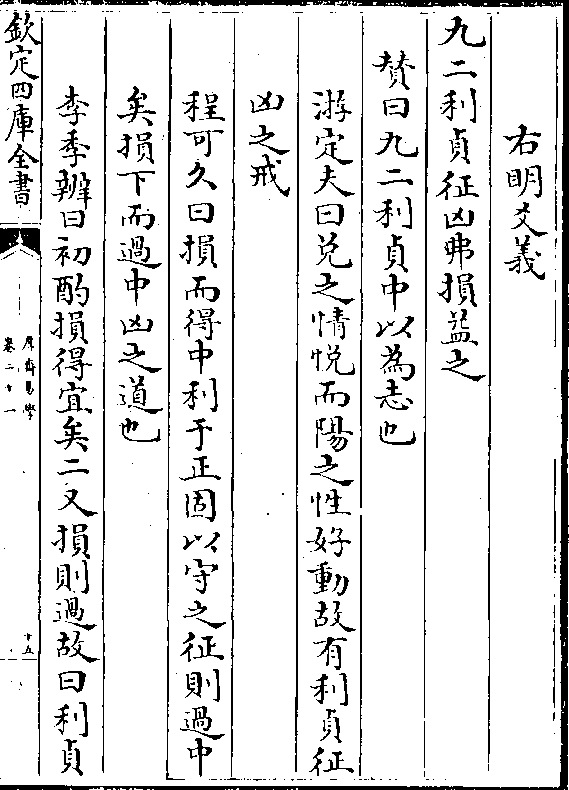 右明爻義
九二利貞征凶弗損益之
賛曰九二利貞中以為志也
游定夫曰兌之情悅而陽之性好動故有利貞征
凶之戒
程可久曰損而得中利于正固以守之征則過中
矣損下而過中凶之道也
李季辨曰初酌損得宜矣二又損則過故曰利貞
欽定四庫全書
厚齋易學
卷二十一
十五